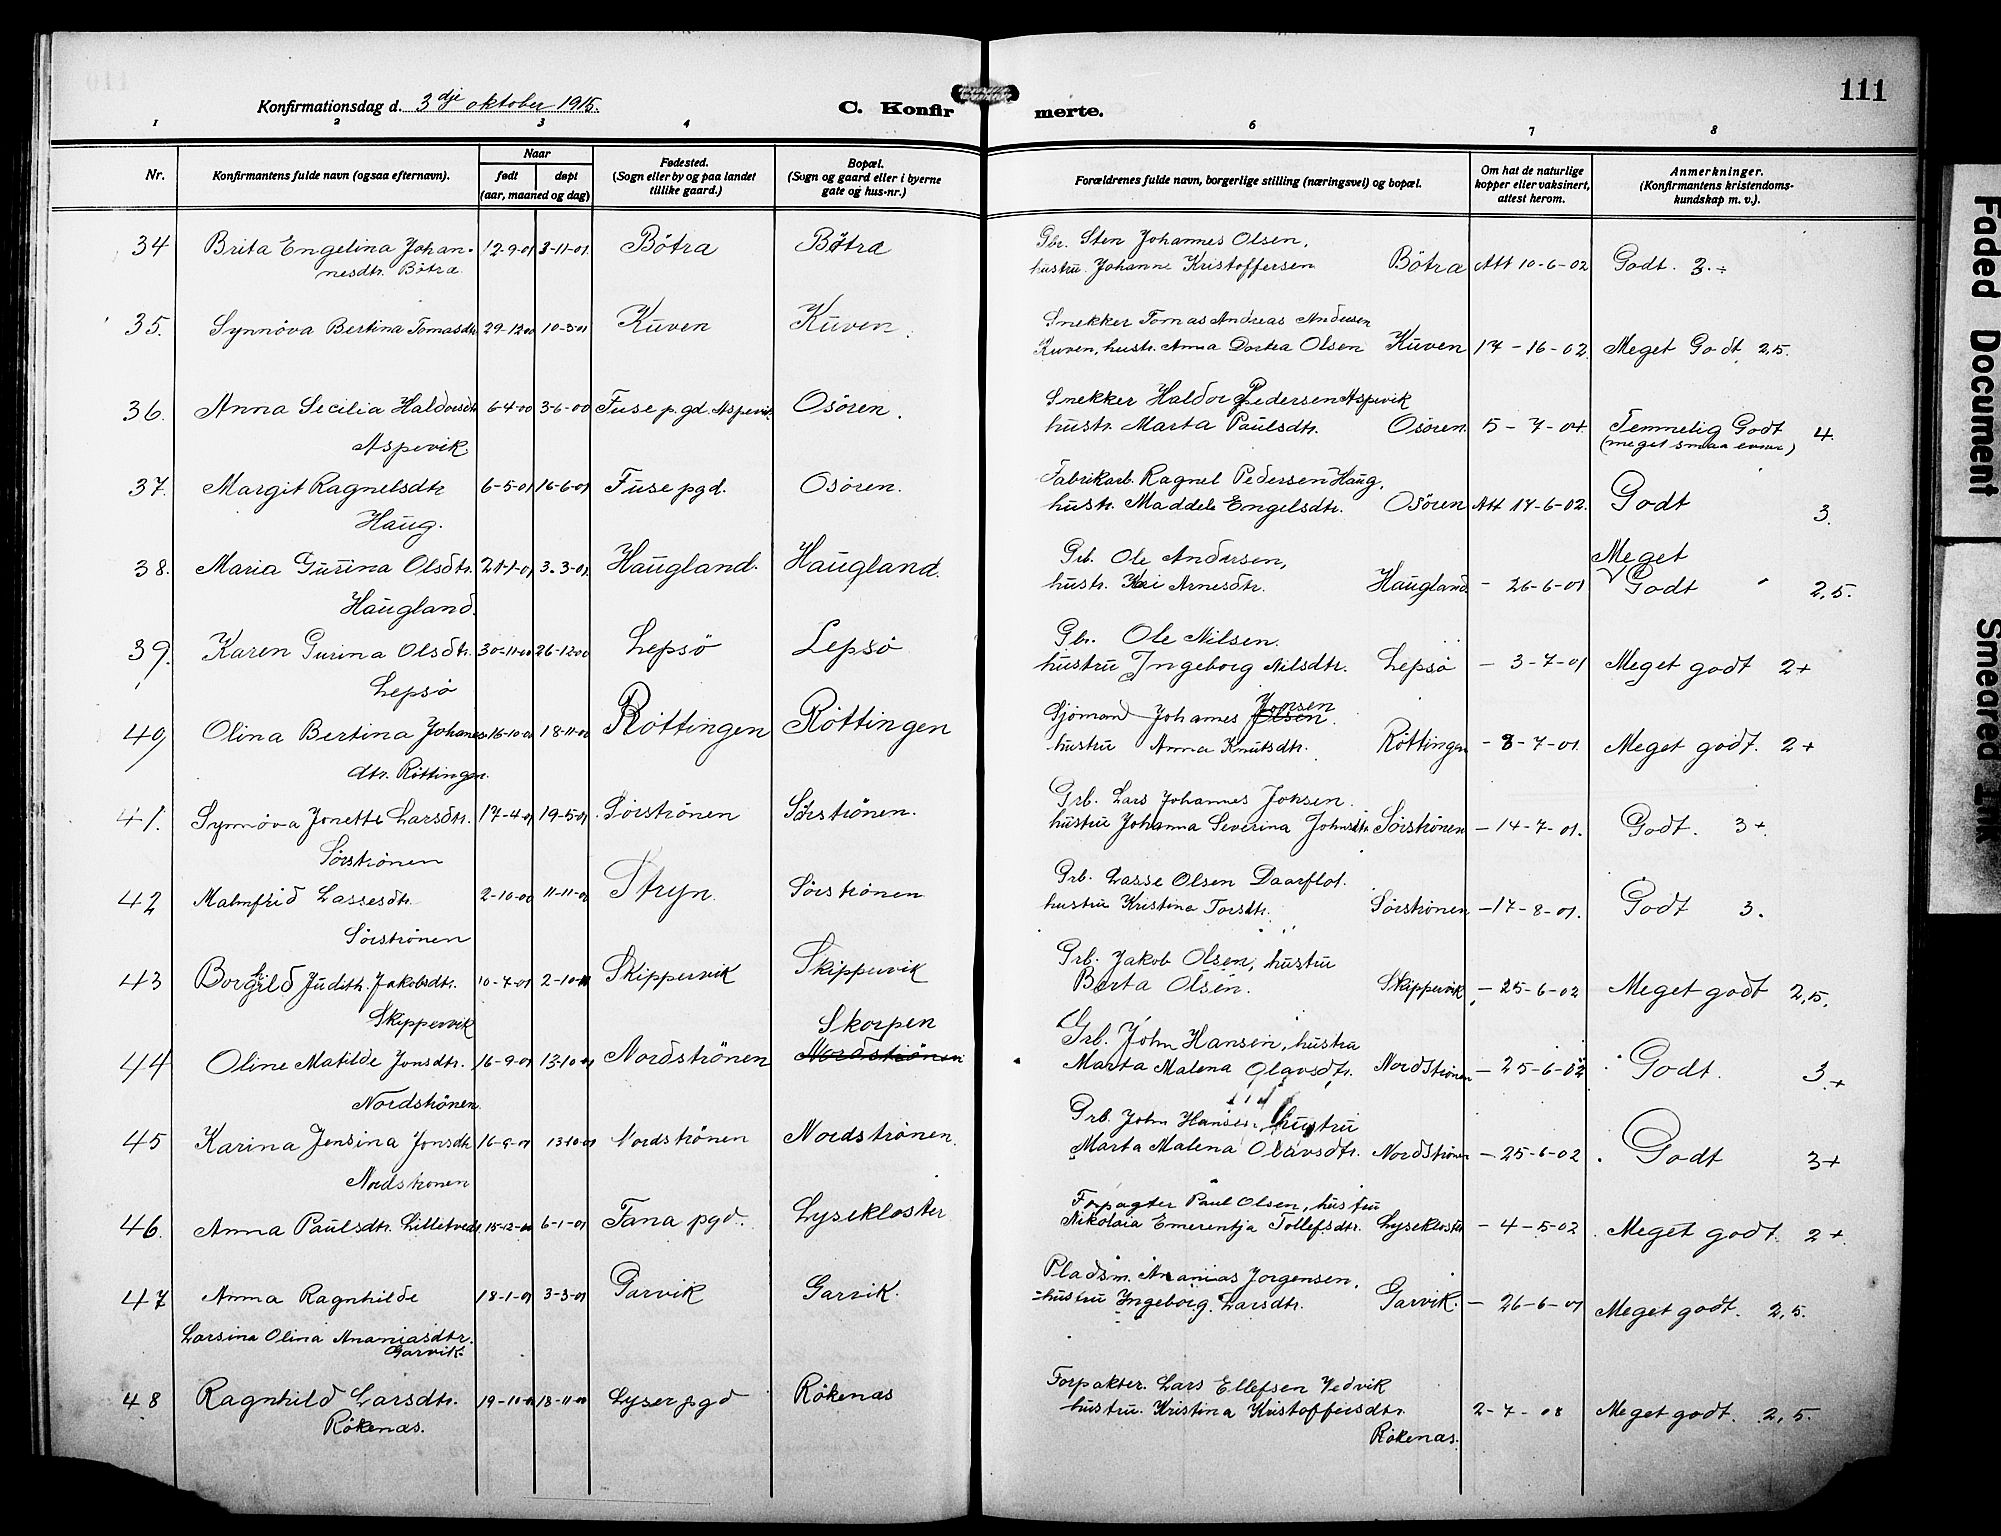 111
Konfirmationsdag d. 3dje oktober 1915.
C. Konfir merte.
1 2 3 4 5 6 7 8
Nr.
Konfirmantens fulde navn (ogsaa efternavn).
Naar
født døpt
(aar, maaned og dag)
Fødested.
(Sogn eller by og paa landet
tillike gaard.)
Bopæl.
(Sogn og gaard eller i byerne
gate og hus-nr.)
Forældrenes fulde navn, borgerlige stilling (næringsvei) og bopæl.
Om hat de naturlige
kopper eller vaksinert,
attest herom.
Anmerkninger.
(Konfirmantens kristendoms-
kundskap m. v.).
34 Brita Engelina Johan- 12-9-01 3-11-01 Bötra Bötra Gbr. Sten Johannes Olsen,
nesdtr. Bötra hustru Johanne Kristoffersen Bötra Att 10-6-02 Godt. 3.÷
35. Synnöva Bertina Tomasdtr 29-12-00 10-3-01 Kuven Kuven. Snekker Tomas Andreas Andersen
Kuven, hustr. Anna Dortea Olsen Kuven 17-16-02 Meget Godt 2,5.
36. Anna Secilia Haldorsdtr 6-4-00 3-6-00 Fuse p.gd. Aspevik Osören. Snekker Haldor Pedersen Aspevik
Aspevik hustr. Marta Paulsdtr. Osören 5-7-01 Temmelig Godt 4.
(meget smaa evner)
37. Margit Ragnelsdtr 6-5-01 16-6-01 Fuse pgd. Osören. Fabrikarb. Ragnel Pedersen Haug,
Haug. hustr. Maddele Engelsdtr. Osören Att 17-6-02. Godt 3.
38. Maria Gurina Olsdtr. 21-1-01 3.3-01 Haugland. Haugland. Grb. Ole Andersen,
Haugland. hustr. Kari Arnesdtr. Haugland - 26-6-01 Meget Godt 2,5.
39. Karen Gurina Olsdtr. 30-11-00 26-12-00 Lepsö Lepsö Gbr. Ole Nilsen.
Lepsö hustru Ingeborg Nilsdtr. Lepsö - 3-7-01 Meget godt 2+
40 Olina Bertina Johannes 16-10-01 18-11-01 Röttingen Röttingen Sjömand Johannes Olsen Jonsen
dtr. Röttingen. hustru Anna Knutsdtr. Röttingen - 8-7-01. Meget godt. 2+
41. Synnöva Jonette Larsdtr. 17-4-01 19-5-01 Sörströnen Sörströnen. Grb. Lars Johannes Jonsen.
Sörströnen hustru Johanna Severina Johnsdtr. Sörströnen - 14-7-01. Godt. 3+
42 Malmfrid Lassesdtr. 2-10-00 11-11-00 Stryn. Sörströnen Grb. Lasse Olsen Daarflot.
Sörströnen hustru Kristine Torsdtr. Sörströnen - 17-8-01. Godt 3.
43 Borghild Judith Jakobsdtr. 10-7-01 2-10-01 Skippervik Skippervik Grb. Jakob Olsen, hustru
Skippervik Berta Olsen. Skippervik - 25-6-02 Meget godt 2,5.
44 Oline Matilde Jonsdtr. 16-9-01 13-10-01 Nordströnen Skorpen Nordströnen Grb. John Hansen, hustru
Nordströnen Marta Malena Olavsdtr. Nordströnen - 25-6-02 Godt. 3+
45 Karina Jensina Jonsdtr 16-9-01 13-10-01 Nordströnen Nordströnen. Grb. John Hansen, hustru
Nordströnen Marta Malena Olavsdtr. Nordströnen - 25-6-02 Godt 3+
46. Anna Paulsdtr. Lilletvedt 15-12-00 6-1-01 Fana pgd. Lysekloster Forpagter Paul Olsen, hustru
Nikolaia Emerentja Tollefsdtr. Lysekloster - 4-5-02 Meget godt. 2+
47 Anna Ragnhilde 18-1-01 3-3-01 Garvik Garvik. Pladsm. Ananias Jorgensen,
Larsina Olina Ananiasdtr. hustru Ingeborg Larsdtr. Garvik. - 26-6-01 Meget godt. 2,5.
Garvik.
48 Ragnhild Larsdtr. 19-10-01 18-11-01 Lyser pgd Rökenas Forpakter. Lars Ellefsen Vedvik
Rökenas. hustru. Kristina Kristoffersdtr. 2-7-08 Meget godt. 2,5.
Rökenas.
Faded Document
Smeared Ink